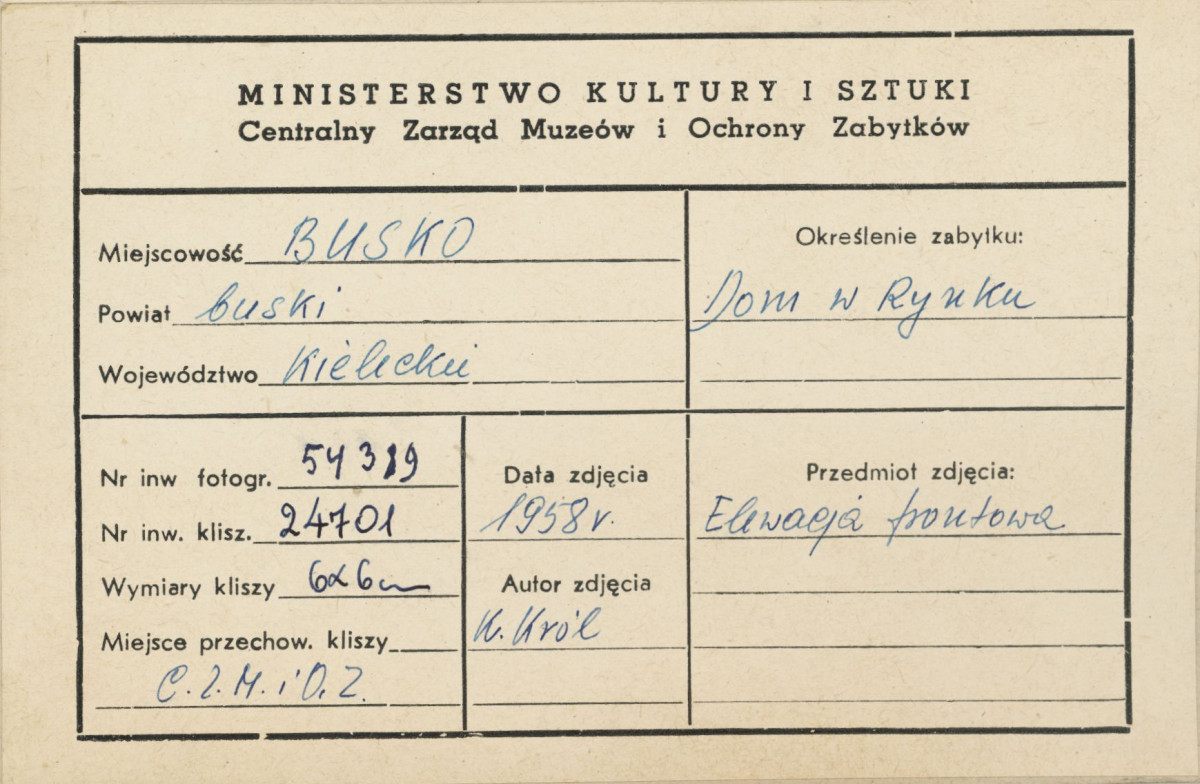 MINISTERSTWO KULTURY I SZTUKI
Centralny Zarząd Muzeów i Ochrony Zabytków
Miejscowość BUSKO
Powiat buski
Województwo Kieleckie
Określenie zabytku:
Dom w Rynku
Nr inw fotogr. 54319
Nr inw. klisz. 24701
Wymiary kliszy 6x6cm
Miejsce przechow. kliszy
C.Z.M.iO.Z.
Data zdjęcia
1958r.
Autor zdjęcia
K. Król
Przedmiot zdjęcia:
Elewacja frontowa